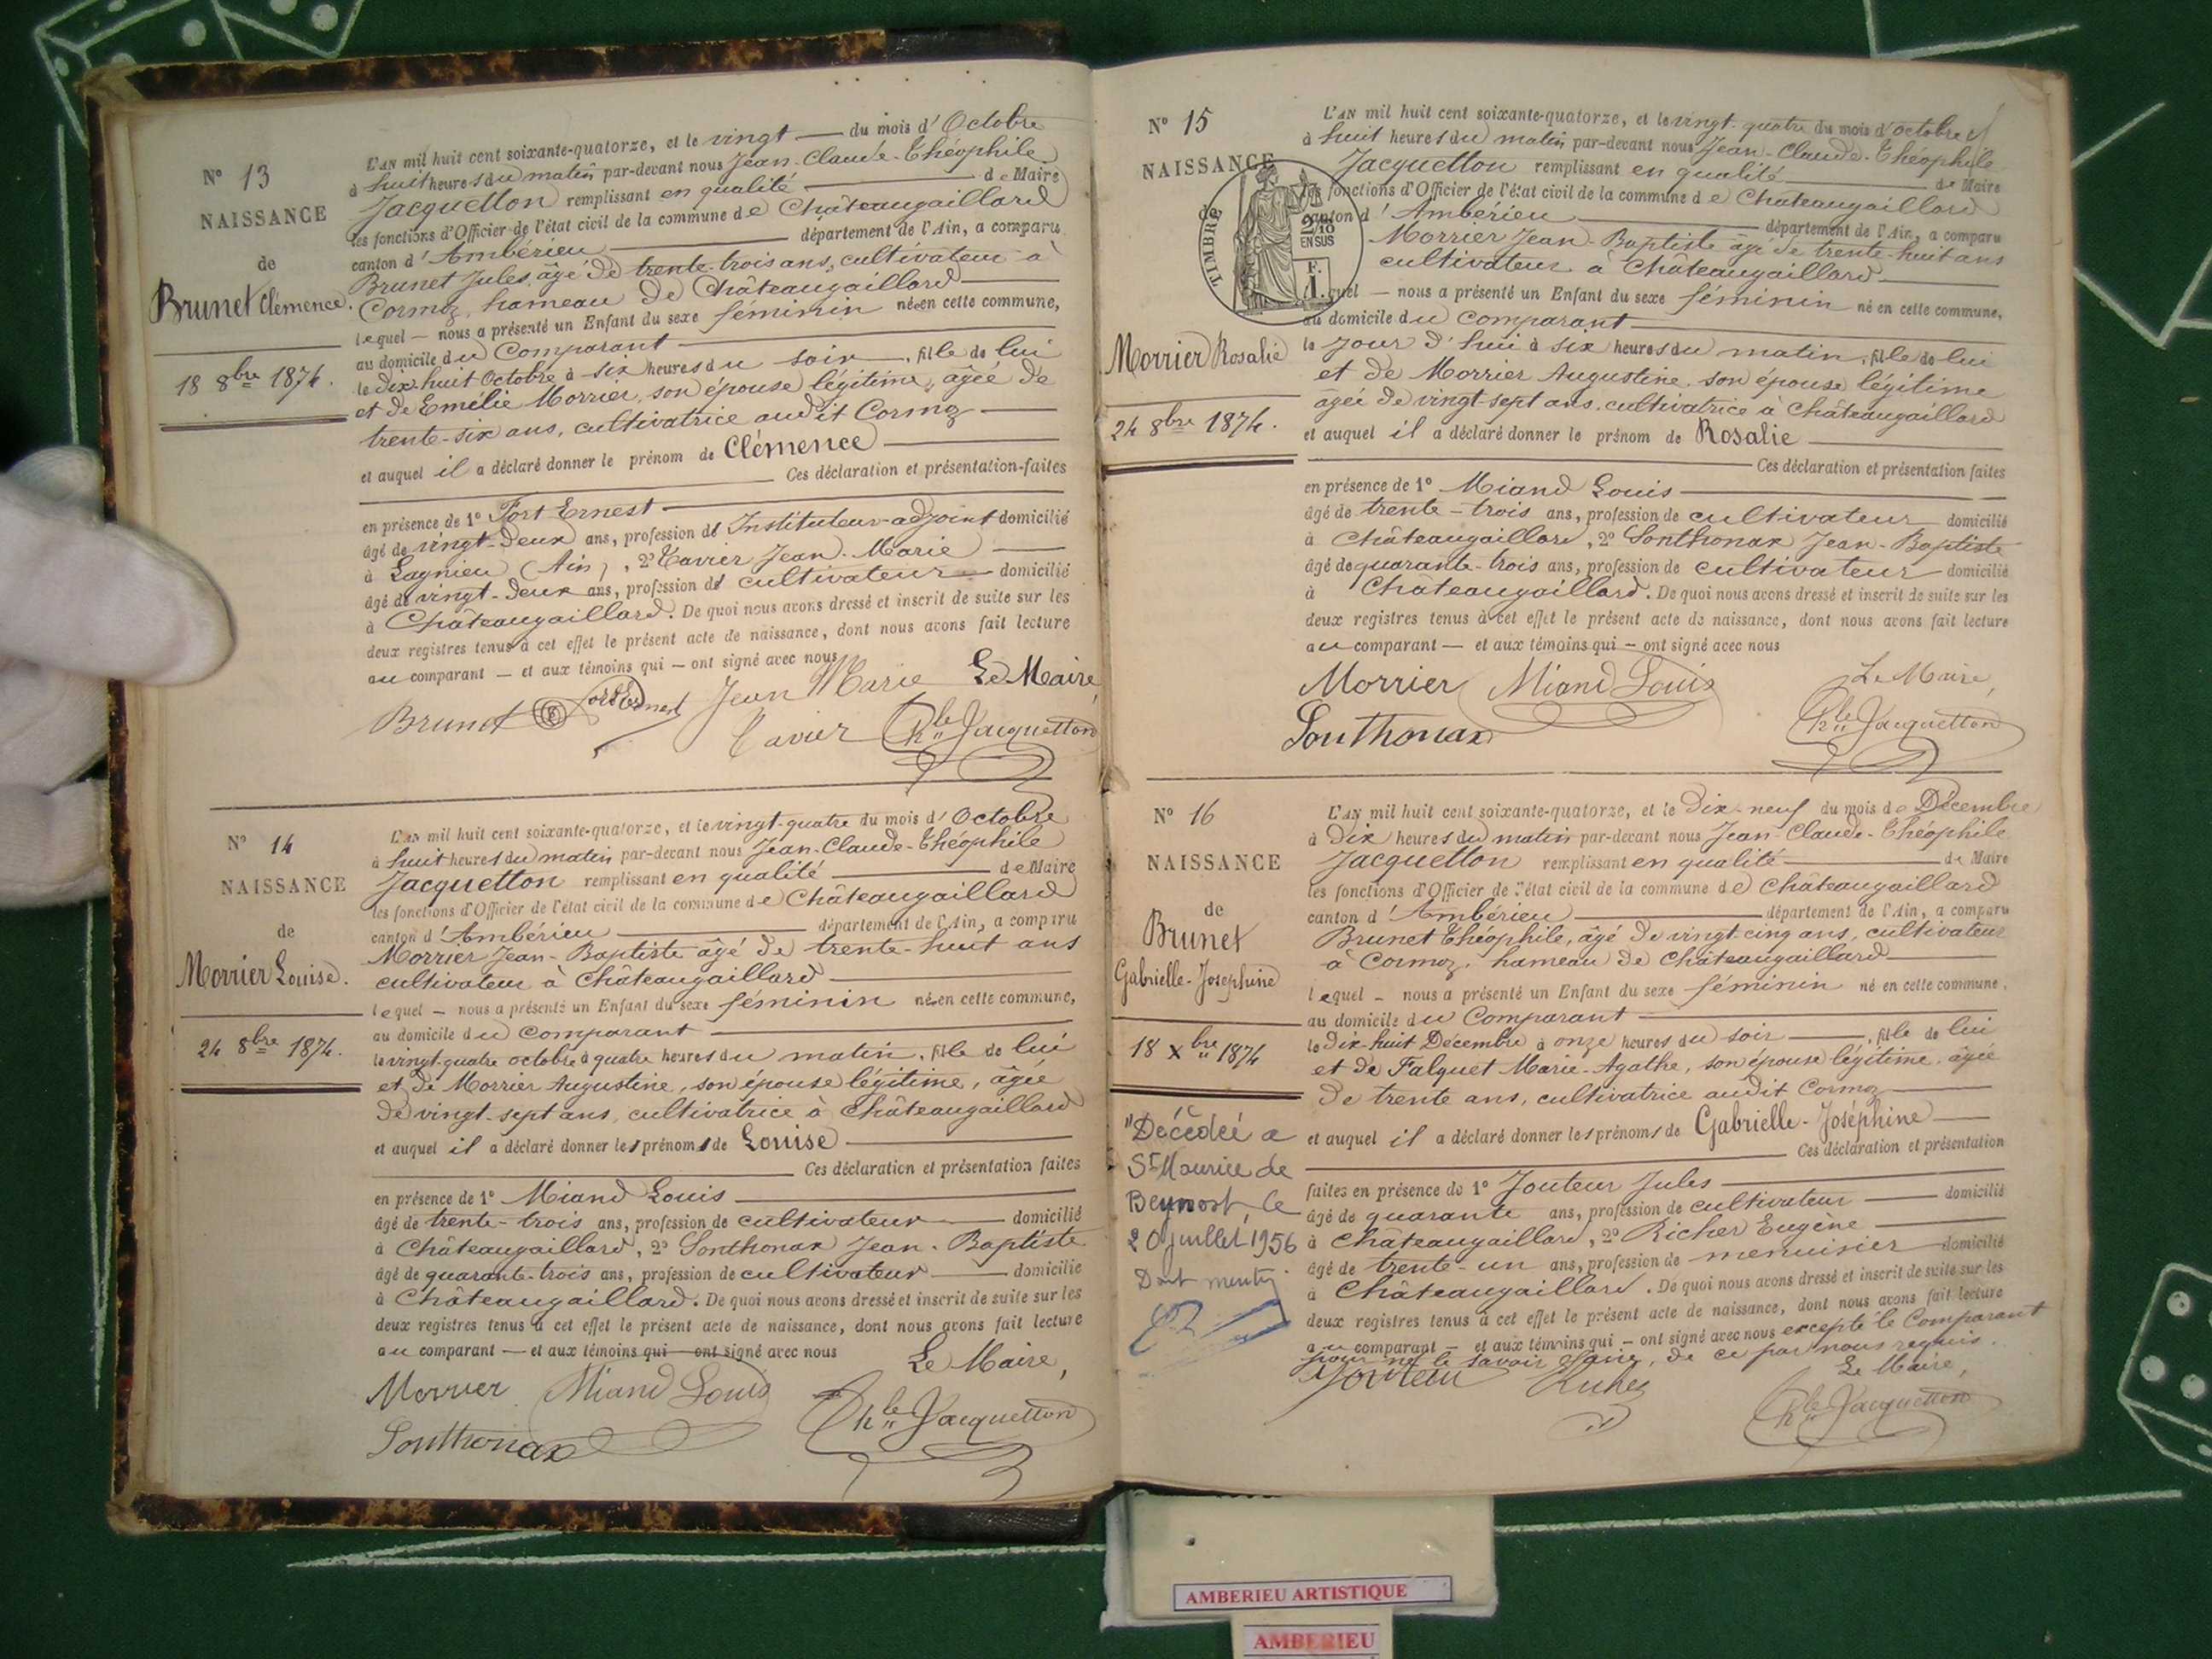 N° 13
NAISSANCE
de
Brunet Clémence.
18 8bre 1874.
L'AN mil huit cent soixante-quatorze, et le vingt — du mois d'Octobre
à huit heures du matin par-devant nous Jean-Claude-Théophile
Jacquetton remplissant en qualité — de Maire
les fonctions d'Officier de l'état civil de la commune de Châteaugaillard
canton d'Ambérieu — département de l'Ain, a comparu
Brunet Jules, âgé de trente-trois ans, cultivateur à
Cormoz, hameau de Châteaugaillard —
lequel — nous a présenté un Enfant du sexe féminin né en cette commune,
au domicile du Comparant —
le dix-huit Octobre à six heures du soir —, fille de lui
et de Emélie Morrier, son épouse légitime, âgée de
trente-six ans, cultivatrice audit Cormoz —
et auquel il a déclaré donner le prénom de Clémence —
— Ces déclaration et présentation-faites
en présence de 1° Fort Ernest —
âgé de vingt-deux ans, profession d' Instituteur-adjoint domicilié
à Lagnieu (Ain), 2° Tavier Jean-Marie —
âgé de vingt-deux ans, profession de cultivateur — domicilié
à Châteaugaillard. De quoi nous avons dressé et inscrit de suite sur les
deux registres tenus à cet effet le présent acte de naissance, dont nous avons fait lecture
au comparant — et aux témoins qui — ont signé avec nous
Le Maire,
Brunet Fort Ernest Jean Marie
Tavier Chle Jacquetton
N° 14
NAISSANCE
de
Morrier Louise.
24 8bre 1874.
L'AN mil huit cent soixante-quatorze, et le vingt-quatre du mois d'Octobre
à huit heures du matin par-devant nous Jean-Claude-Théophile
Jacquetton remplissant en qualité — de Maire
les fonctions d'Officier de l'état civil de la commune de Châteaugaillard
canton d'Ambérieu — département de l'Ain, a comparu
Morrier Jean-Baptiste âgé de trente-huit ans
cultivateur à Châteaugaillard —
lequel — nous a présenté un Enfant du sexe féminin né en cette commune,
au domicile du comparant —
le vingt-quatre octobre à quatre heures du matin, fille de lui
et de Morrier Augustine, son épouse légitime, âgée
de vingt-sept ans, cultivatrice à Châteaugaillard
et auquel il a déclaré donner les prénoms de Louise —
— Ces déclaration et présentation faites
en présence de 1° Miand Louis —
âgé de trente-trois ans, profession de cultivateur — domicilié
à Châteaugaillard, 2° Sonthonax Jean-Baptiste
âgé de quarante-trois ans, profession de cultivateur — domicilié
à Châteaugaillard. De quoi nous avons dressé et inscrit de suite sur les
deux registres tenus à cet effet le présent acte de naissance, dont nous avons fait lecture
au comparant — et aux témoins qui — ont signé avec nous
Le Maire,
Morrier Miand Louis Chle Jacquetton
Sonthonax
N° 15
NAISSANCE
de
Morrier Rosalie
24 8bre 1874.
TIMBRE
2/10
EN SUS
F.
1.
L'AN mil huit cent soixante-quatorze, et le vingt-quatre du mois d'octobre
à huit heures du matin par-devant nous Jean-Claude-Théophile
Jacquetton remplissant en qualité — de Maire
les fonctions d'Officier de l'état civil de la commune de Châteaugaillard
canton d'Ambérieu — département de l'Ain, a comparu
Morrier Jean-Baptiste âgé de trente-huit ans
cultivateur à Châteaugaillard —
lequel — nous a présenté un Enfant du sexe féminin né en cette commune,
au domicile du comparant —
le jour d'hui à six heures du matin, fille de lui
et de Morrier Augustine, son épouse légitime
âgée de vingt-sept ans, cultivatrice à Châteaugaillard
et auquel il a déclaré donner le prénom de Rosalie —
— Ces déclaration et présentation faites
en présence de 1° Miand Louis —
âgé de trente-trois ans, profession de cultivateur domicilié
à Châteaugaillard, 2° Sonthonax Jean-Baptiste
âgé de quarante-trois ans, profession de cultivateur domicilié
à Châteaugaillard. De quoi nous avons dressé et inscrit de suite sur les
deux registres tenus à cet effet le présent acte de naissance, dont nous avons fait lecture
au comparant — et aux témoins qui — ont signé avec nous
Morrier Miand Louis Le Maire,
Sonthonax Chle Jacquetton
N° 16
NAISSANCE
de
Brunet
Gabrielle-Joséphine
18 Xbre 1874
"Décédée à
St Maurice de
Beynost, le
20 juillet 1956
Dont mention
L'AN mil huit cent soixante-quatorze, et le dix-neuf du mois de Décembre
à dix heures du matin par-devant nous Jean-Claude-Théophile
Jacquetton remplissant en qualité — de Maire
les fonctions d'Officier de l'état civil de la commune de Châteaugaillard
canton d'Ambérieu — département de l'Ain, a comparu
Brunet Théophile, âgé de vingt-cinq ans, cultivateur
à Cormoz, hameau de Châteaugaillard —
lequel — nous a présenté un Enfant du sexe féminin né en cette commune,
au domicile du Comparant —
le dix-huit Décembre à onze heures du soir —, fille de lui
et de Falquet Marie-Agathe, son épouse légitime, âgée
de trente ans, cultivatrice audit Cormoz —
et auquel il a déclaré donner les prénoms de Gabrielle-Joséphine —
— Ces déclaration et présentation
faites en présence de 1° Jouteur Jules —
âgé de quarante ans, profession de cultivateur — domicilié
à Châteaugaillard, 2° Richer Eugène —
âgé de trente-un ans, profession de menuisier — domicilié
à Châteaugaillard. De quoi nous avons dressé et inscrit de suite sur les
deux registres tenus à cet effet le présent acte de naissance, dont nous avons fait lecture
au comparant — et aux témoins qui — ont signé avec nous excepté le Comparant
pour ne le savoir de ce par nous requis.
Le Maire,
Jouteur Richer Chle Jacquetton
AMBERIEU ARTISTIQUE
AMBERIEU